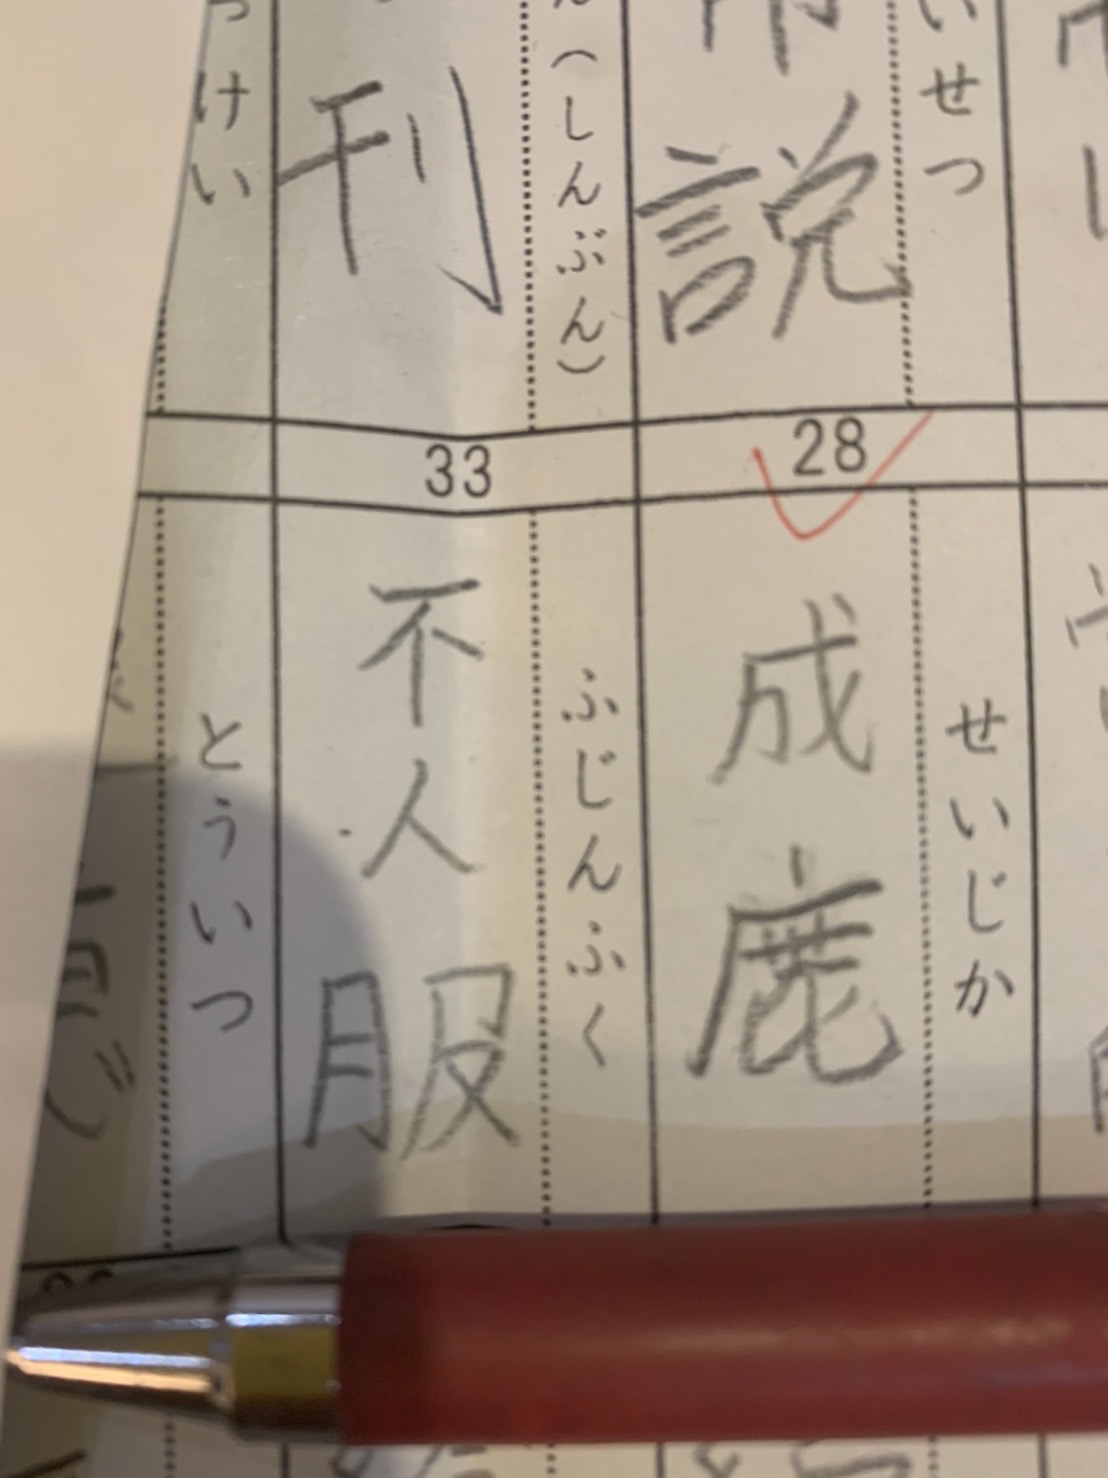 いせつ
説
ん(しんぶん)
刊
っけい
28
せいじか
成鹿
33
ふじんふく
不人服
とういつ